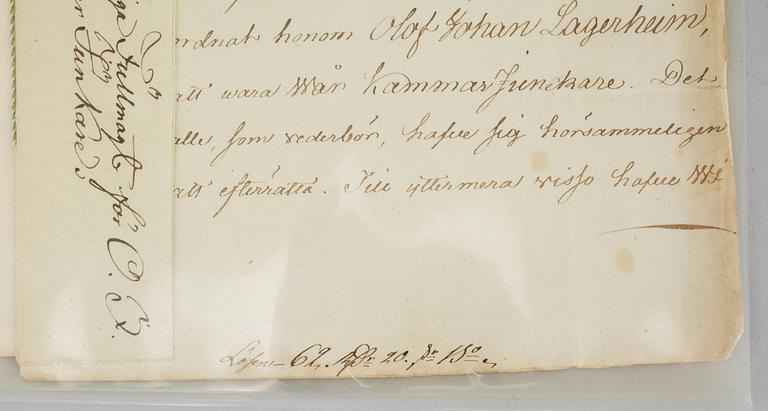 ordnat honom Olof Johan Lagerheim,
att wara Wår Kammar Junckare. Det
alle, som vederbör, hafue sig hörsammeligen
att efterrätta. Till yttermera visso hafue Wi
Lösen 62. Rdr 20.
Fullmagt för O. J.
Junkare